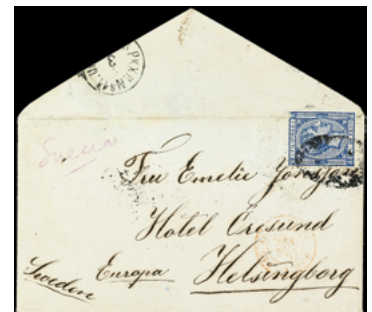 PKXP.Nº
Svecia
Fru Emelie
Hotel Öresund
Sweden Europa Helsingborg